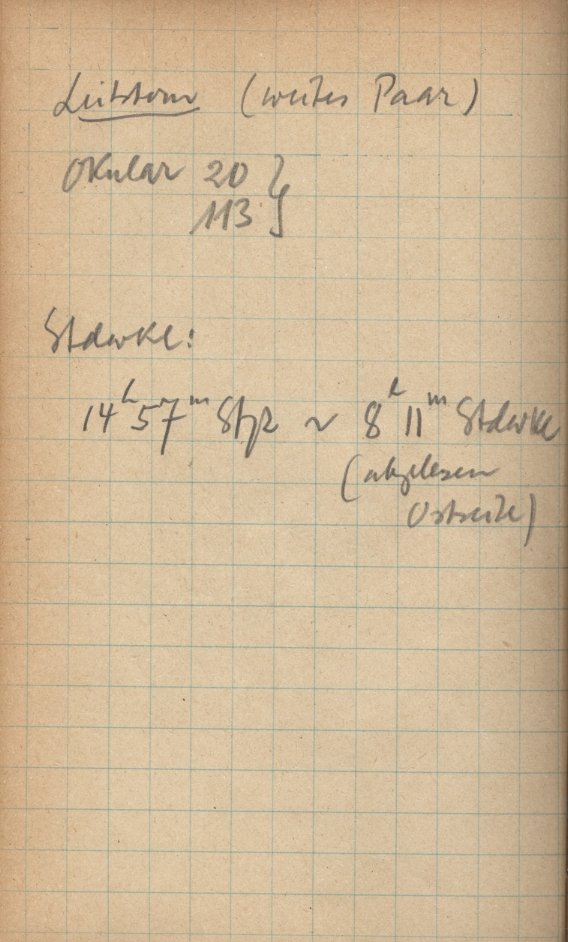 Leitstern (weites Paar)
Okular 20 }
113
Stdwkl:
14h 57m Stzt ~ 8h 11m Stdwkl
(abgelesen
Ostseite)